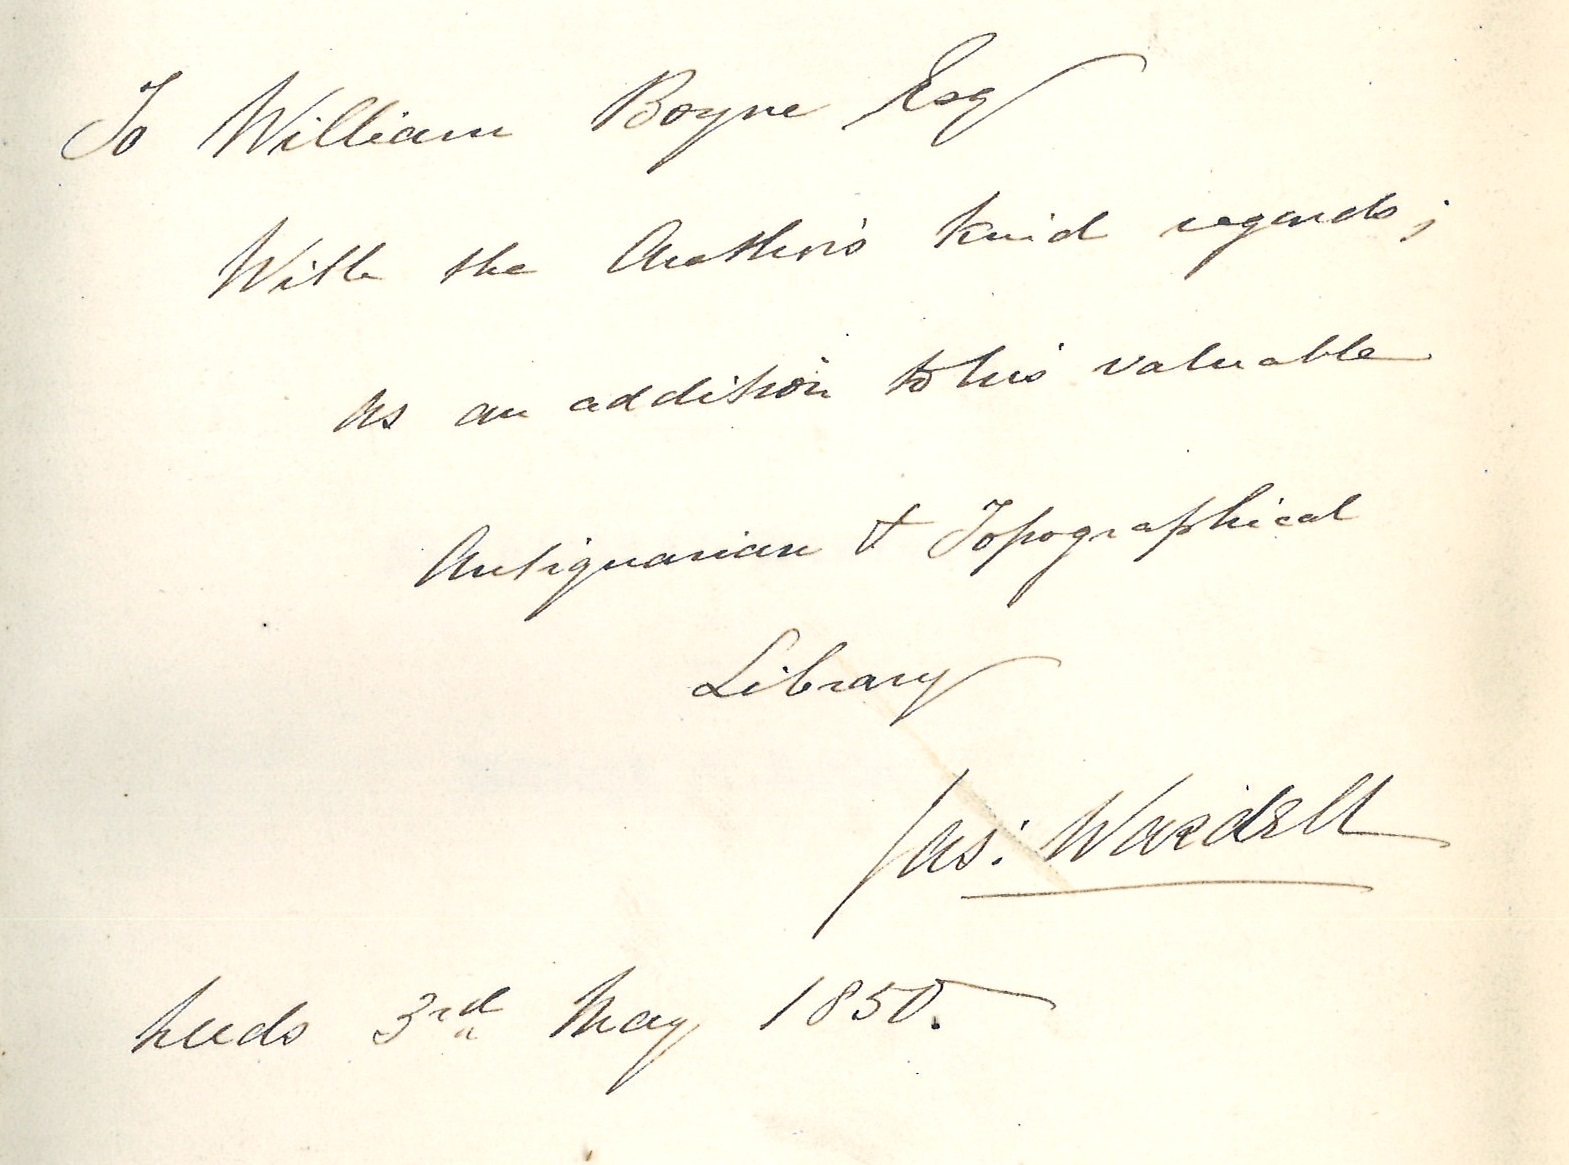 To William Boyne Esq
With the Author's kind regards;
As an addition to his valuable
Antiquarian & Topographical
Library
Jas: Wardell
Leeds 3rd May 1850.